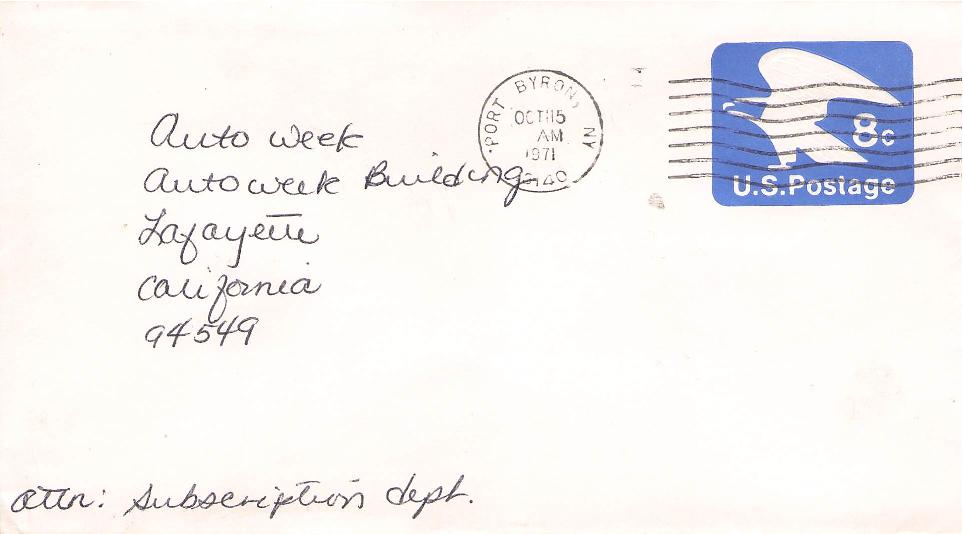 PORT BYRON, NY
OCT 15
AM
1971
8c
U.S. Postage
Auto Week
Autoweek Building
Lafayette
California
94549
attn: Subscription dept.